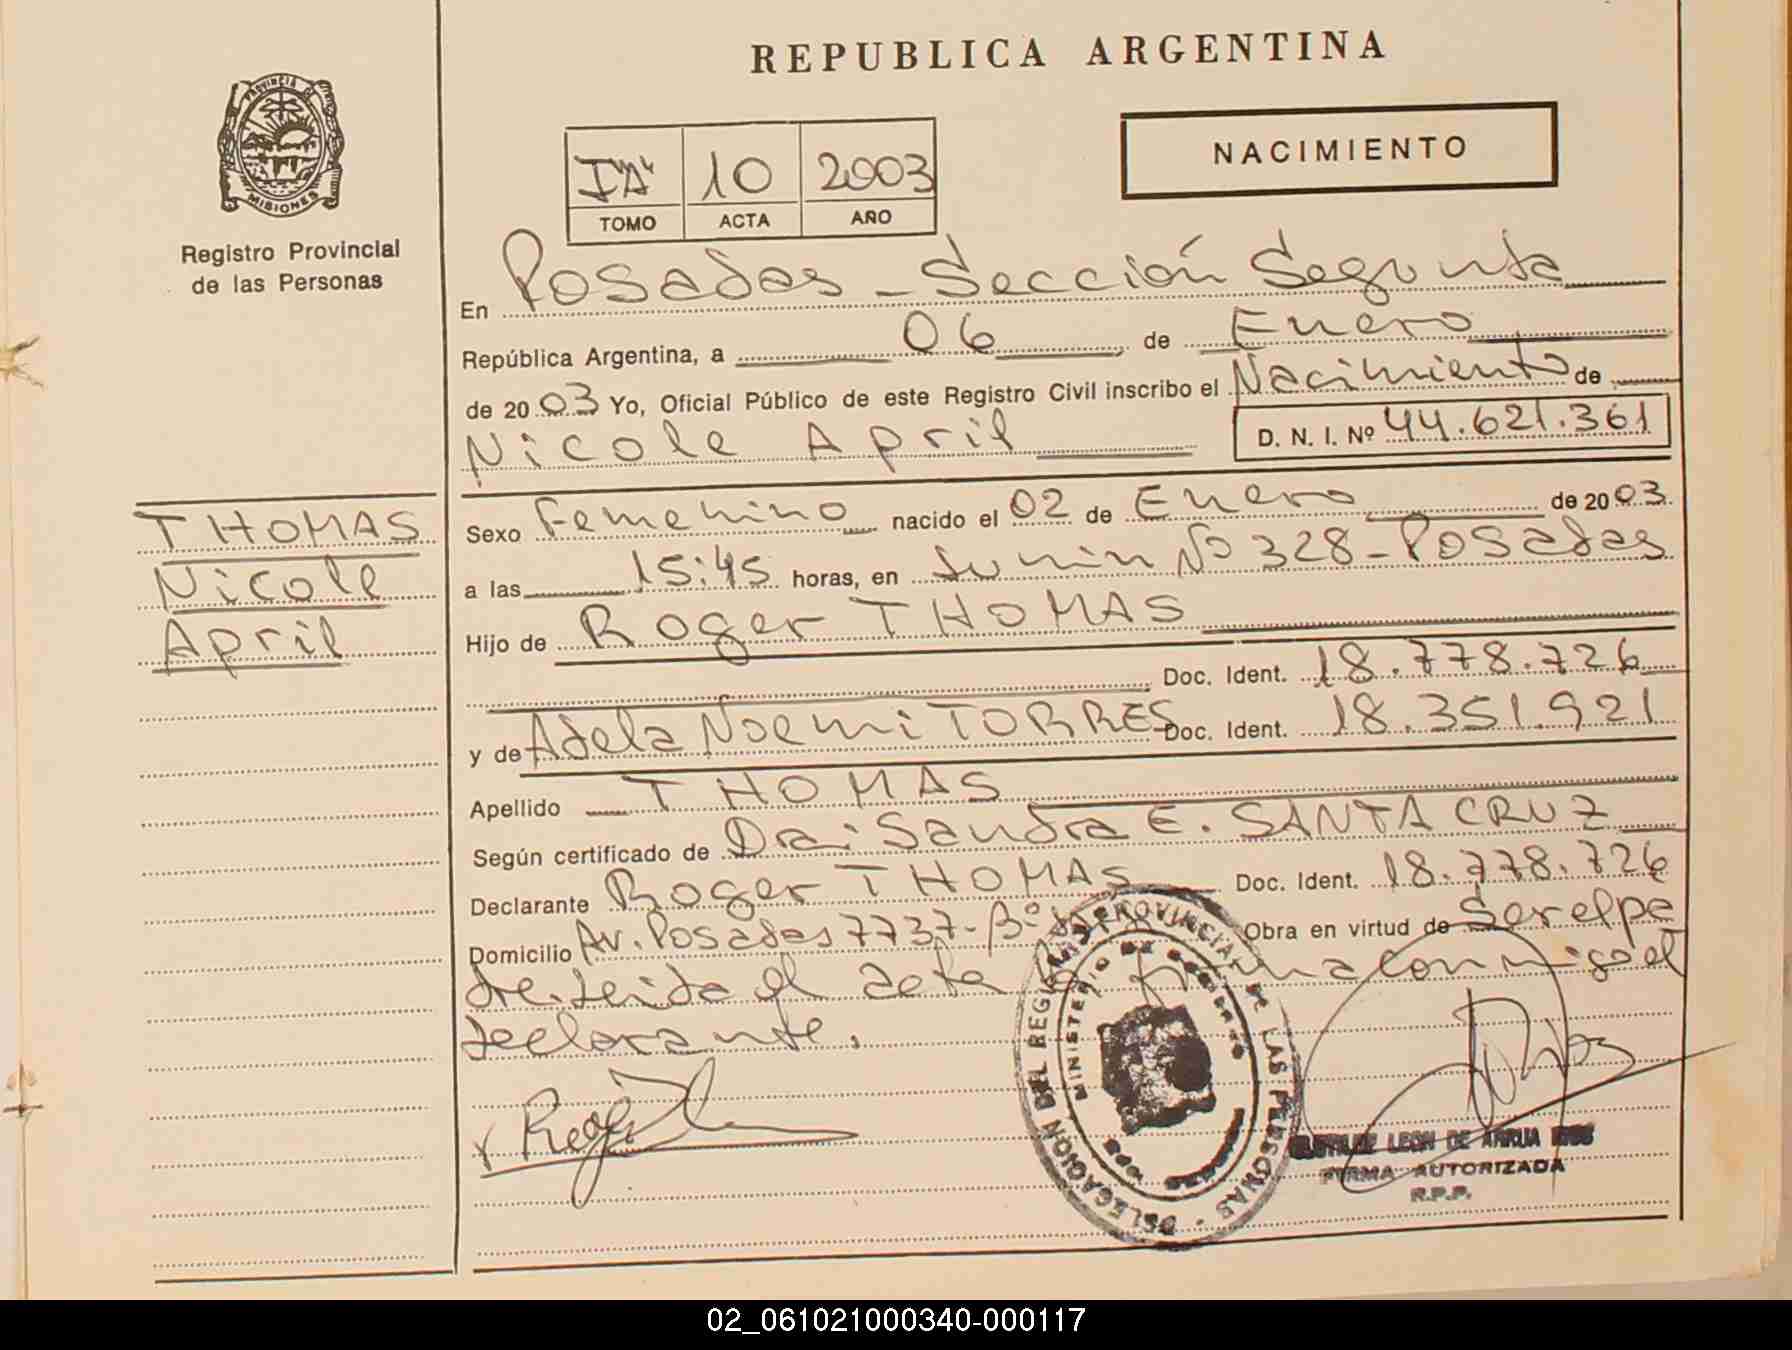 REPUBLICA ARGENTINA
PROVINCIA DE MISIONES
Registro Provincial
de las Personas
I "A" 10 2003
TOMO ACTA AÑO
NACIMIENTO
En Posadas - Sección Segunda
República Argentina, a 06 de Enero
de 2003 Yo, Oficial Público de este Registro Civil inscribo el Nacimiento de
Nicole April D. N. I. Nº 44.621.361
THOMAS
Nicole
April
Sexo Femenino nacido el 02 de Enero de 2003
a las 15:45 horas, en Junin Nº 328 - Posadas
Hijo de Roger THOMAS
Doc. Ident. 18.778.726
y de Adela Noemi TORRES Doc. Ident. 18.351.921
Apellido THOMAS
Según certificado de Dra: Sandra E. SANTA CRUZ
Declarante Roger THOMAS Doc. Ident. 18.778.726
Domicilio Av. Posadas 7737 - Bº Obra en virtud de Ser el pe
dre. Leida el acta firma conmigo el
declarante.
DELEGACION DEL REGISTRO PROVINCIAL DE LAS PERSONAS
MINISTERIO DE GOBIERNO
LEON DE ARRUA
FIRMA AUTORIZADA
R.P.P.
02_061021000340-000117